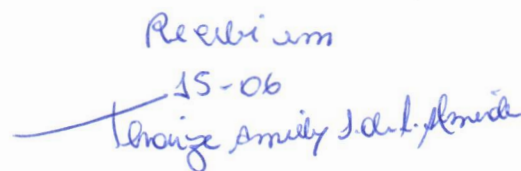 Recebi em
15-06
Thaize Emily S. de A. Almeida